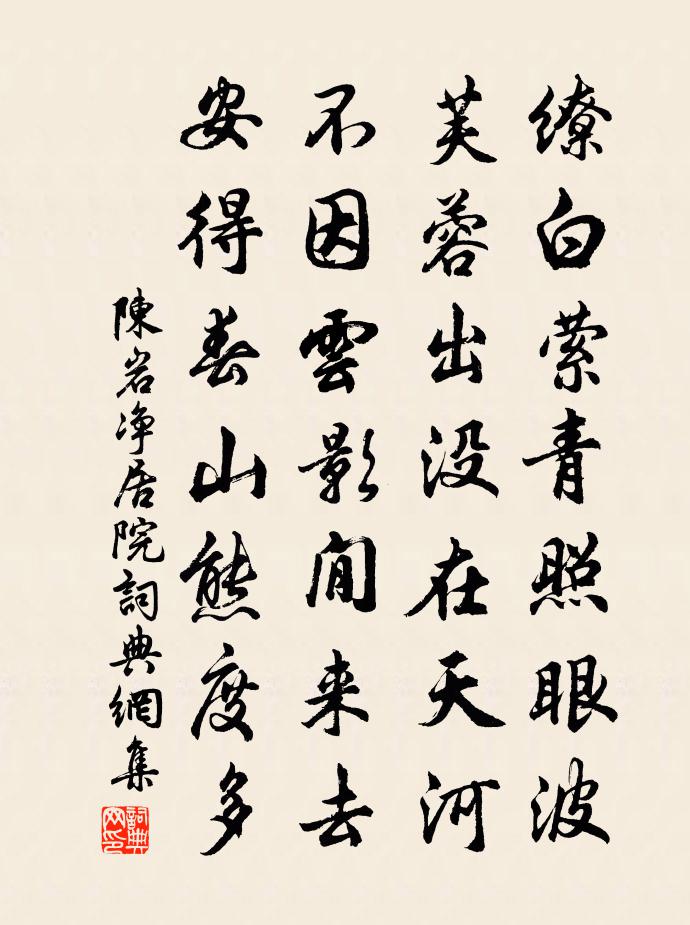 繚白萦青照眼波
芙蓉出没在天河
不因雲影閒来去
安得春山態度多
陳岩净居院詞典網集
詞典网印